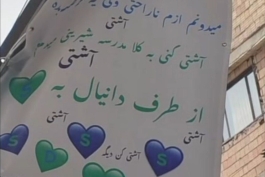 میدونم ازم ناراحتی ولی یه
آشتی
آشتی کنی به کل مدرسه شیرینی میدم
آشتی
از طرف دانیال به
آشتی
آشتی
آشتی
آشتی کن دیگه
S S
S